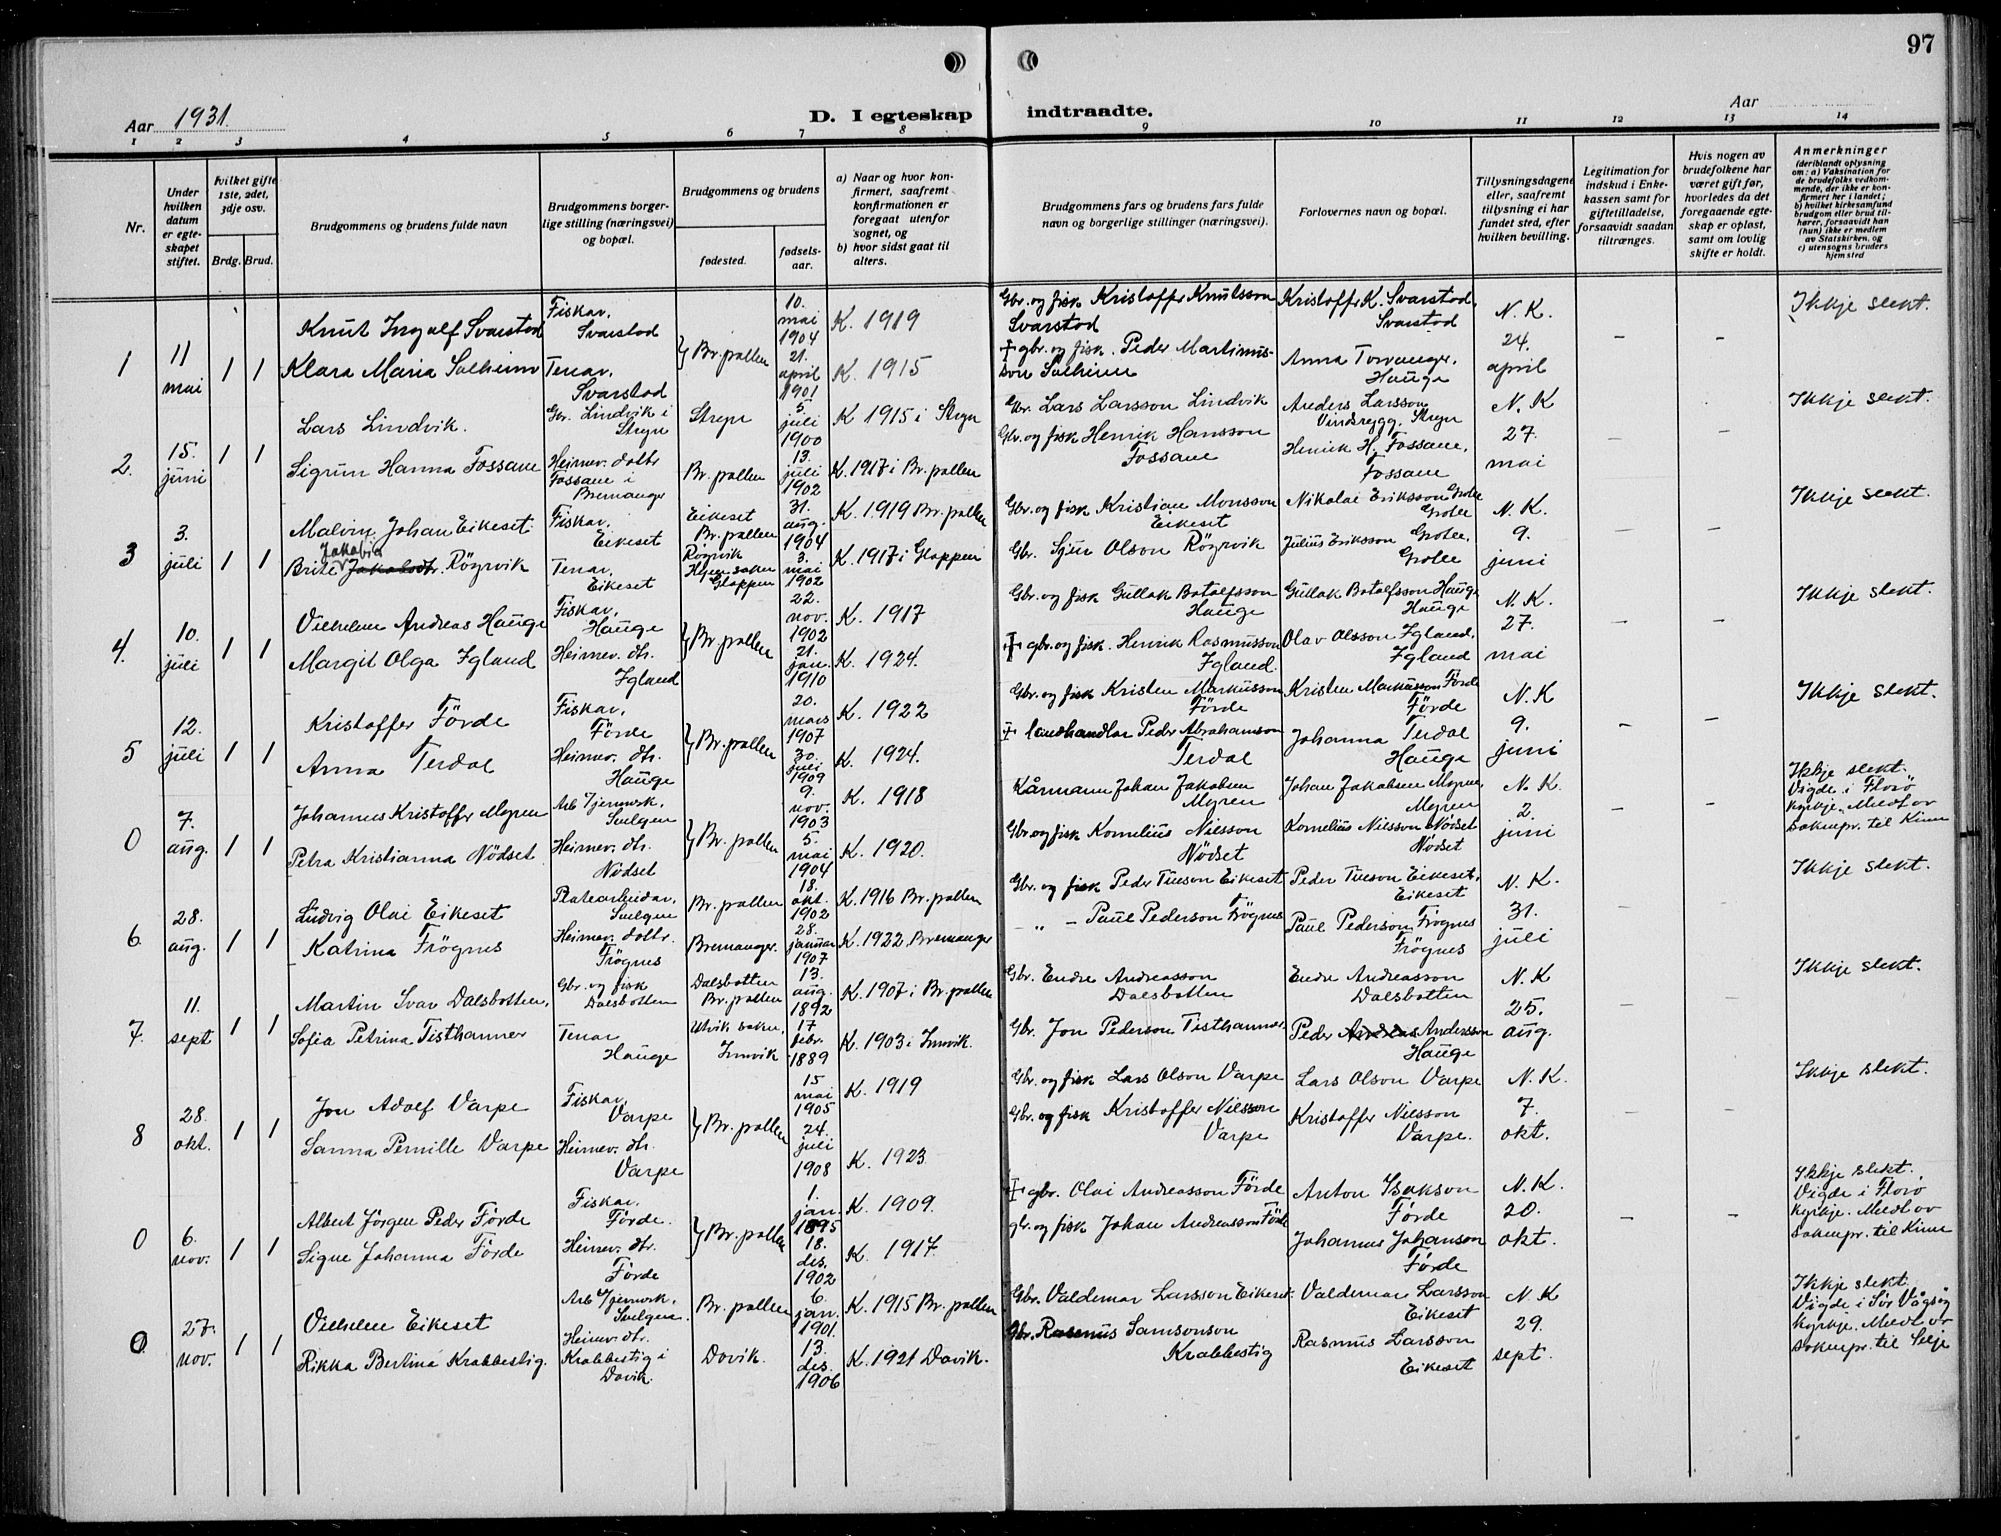 97
Aar 1931.
D. I egteskap indtraadte.
Aar
1 2 3 4 5 6 7 8 9 10 11 12 13 14
Nr.
Under hvilken datum er egteskapet stiftet.
hvilket gifte 1ste, 2det, 3dje osv.
Brdg. Brud.
Brudgommens og brudens fulde navn
Brudgommens borgerlige stilling (næringsvei) og bopæl.
Brudgommens og brudens
fødested.
fødselsaar.
a) Naar og hvor konfirmert, saafremt konfirmationen er foregaat utenfor sognet, og
b) hvor sidst gaat til alters.
Brudgommens fars og brudens fars fulde navn og borgerlige stillinger (næringsvei).
Forlovernes navn og bopæl.
Tillysningsdagene eller, saafremt tillysning ei har fundet sted, efter hvilken bevilling.
Legitimation for indskud i Enkekassen samt for giftetilladelse, forsaavidt saadan tiltrænges.
Hvis nogen av brudefolkene har været gift før, hvorledes da det foregaaende egteskap er opløst, samt om lovlig skifte er holdt.
Anmerkninger
(deriblandt oplysning om: a) Vaksination for de brudefolks vedkommende, der ikke er konfirmert her i landet; b) hvilket kirkesamfund brudgom eller brud tilhører, forsaavidt han (hun) ikke er medlem av Statskirken, og c) utensogns bruders hjemsted
1 11 mai 1 1
Knut Ingolf Svarstad Fiskar, Svarstad 10. mai 1904 K. 1919
Klara Maria Solheim Tenar, Svarstad } Br.pollen 21. april 1901 K. 1915
Gbr. og fisk Kristoffer Knutsson Svarstad Kristoffer K. Svarstad, Svarstad N. K. 24. april – – Ikkje slekt.
+ gbr. og fisk. Peder Martinusson Solheim Anna Torvanger, Hauge
2. 15. juni 1 1
Lars Lindvik. Gbr. Lindvik i Stryn Stryn 5 juli 1900 K 1915 i Stryn
Sigrun Hanna Fossane Heimev. dottr Fossane i Bremanger Br. pollen 13. juli 1902 K. 1917 i Br. pollen
Gbr. Lars Larsson Lindvik Anders Larsson Vindsrygg, Stryn N. K 27. mai – – Ikkje slekt.
Gbr. og fisk Henrik Hansson Fossane Henrik H. Fossane, Fossane
3 3. juli 1 1
Malvin Johan Eikeset. Fiskar, Eikeset Eikeset Br. pollen 31. aug. 1904 K. 1919 Br. pollen
Brite Jakobia Jakobsdtr. Röyrvik Tenar, Eikeset Röyrvik Gloppen 3. mai 1902 K. 1917 i Gloppen
Gbr. og fisk Kristian Monsson Eikeset Nikolai Eriksson Grotle Grotle N. K. 9. juni – – Ikkje slekt.
Gbr. Sjur Olson Röyrvik Julius Eriksson Grotle, Grotle
4. 10. juli 1 1
Vilhelm Andreas Hauge Fiskar, Hauge 22. nov. 1902 K. 1917
Margit Olga Igland Heimev. dtr. Igland } Br. pollen 21. jan. 1910 K. 1924.
Gbr. og fisk Gullak Botolfsson Hauge Gullak Botolfsson Hauge Hauge N. K. 27. mai – – Ikkje slekt.
+ gbr. og fisk. Henrik Rasmusson Igland. Olav Olsson Igland, Igland
5 12. juli 1 1
Kristoffer Förde Fiskar, Förde 20. mars 1907 K. 1922
Anna Terdal Heimev. dtr. Hauge } Br. pollen 30. juli 1909 K. 1924.
Gbr. og fisk Kristen Markusson Förde Kristen Markusson Förde Förde N. K 9. juni – – Ikkje slekt.
+ landhandlar Peder Abrahamson Terdal Johanna Terdal Hauge
0 7. aug. 1 1
Johannes Kristoffer Myren Arb Tjernvsk. Svelgen 9. nov. 1903 K. 1918
Petra Kristianna Nödset Heimev. dtr. Nödset } Br. pollen 5. mai 1904 K. 1920.
Kårmann Johan Jakobsen Myren Johan Jakobsen Myren, Myren N. K. 2. juni – – Ikkje slekt. Vigde i Florö kyrkje. Medl av sokenpr. til Kinn
Gbr og fisk Kornelius Nilsson Nödset Kornelius Nilsson Nödset Nödset
6. 28. aug. 1 1
Ludvig Olai Eikeset Platearbeidar, Svelgen Br. pollen 18. okt. 1902 K. 1916 Br. pollen
Katrina Frögnes Heimev. dottr. Frögnes Bremanger. 28. januar 1907 K. 1922 Bremanger
Gbr. og fisk Peder Tueson Eikeset Peder Tueson Eikeset, Eikeset N. K. 31. juli – – Ikkje slekt.
– „ – Paul Pederson Frögnes Paul Pederson Frögnes Frögnes
7. 11. sept 1 1
Martin Ivar Dalsbotten, Gbr. og fisk Dalsbotten Dalsbotten Br. pollen 13. aug. 1892 K. 1907 i Br. pollen
Sofia Petrina Tisthamer Tenar Hauge Utvik sokn, Innvik 17 febr. 1889 K. 1903 i Innvik.
Gbr. Endre Andreasson Dalsbotten Endre Andreasson Dalsbotten N. K 25. aug. – – Ikkje slekt.
Gbr. Jon Pederson Tisthamer Peder Andreas Andersson Hauge
8 28. okt. 1 1
Jon Adolf Varpe Fiskar, Varpe 15 mai 1905 K. 1919
Sanna Pernille Varpe Heimev. dtr. Varpe } Br. pollen 24. juli 1908 K. 1923
Gbr. og fisk Lars Olson Varpe Lars Olson Varpe N. K. 7. okt. – – Ikkje slekt.
Gbr. og fisk Kristoffer Nilsson Varpe Kristoffer Nilsson Varpe.
0 6. nov. 1 1
Albert Jörgen Peder Förde Fiskar. Förde. 1. jan 1895 K. 1909.
Signe Johanna Förde Heimev. dtr. Förde } Br. pollen 18. des. 1902 K. 1917.
+ gbr. Olai Andreasson Förde Anton Isakson Förde N. K. 20. okt. – – Ikkje slekt. Vigde i Florö kyrkje. Medl av sokenpr. til Kinn
gbr. og fisk Johan Andreasson Förde Johannes Johanson Förde
0 27. nov. 1 1
Vilhelm Eikeset Arb Tjernvsk. Svelgen. Br. pollen 6. jan. 1901. K. 1915 Br. pollen
Rikka Bertina Krabbestig. Heimv. dtr. Krabbestig i Davik. Davik. 13. des. 1906 K. 1921 Davik.
Gbr. Valdemar Larsson Eikeset. Valdemar Larsson Eikeset N. K 29. sept. Ikkje slekt. Vigde i Sör Vågsöy kyrkje. Medl av sokenpr. til Selje
Gbr. Rasmus Samsonson Krabbestig Rasmus Larsson Eikeset